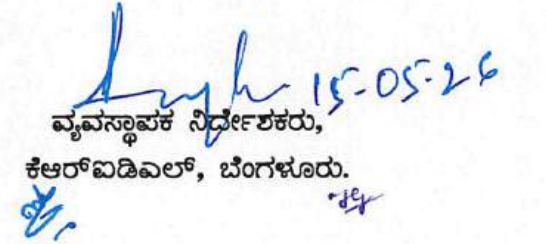 15-05-26
ವ್ಯವಸ್ಥಾಪಕ ನಿರ್ಧೇಶಕರು,
ಕೆಆರ್‌ಐಡಿಎಲ್, ಬೆಂಗಳೂರು.